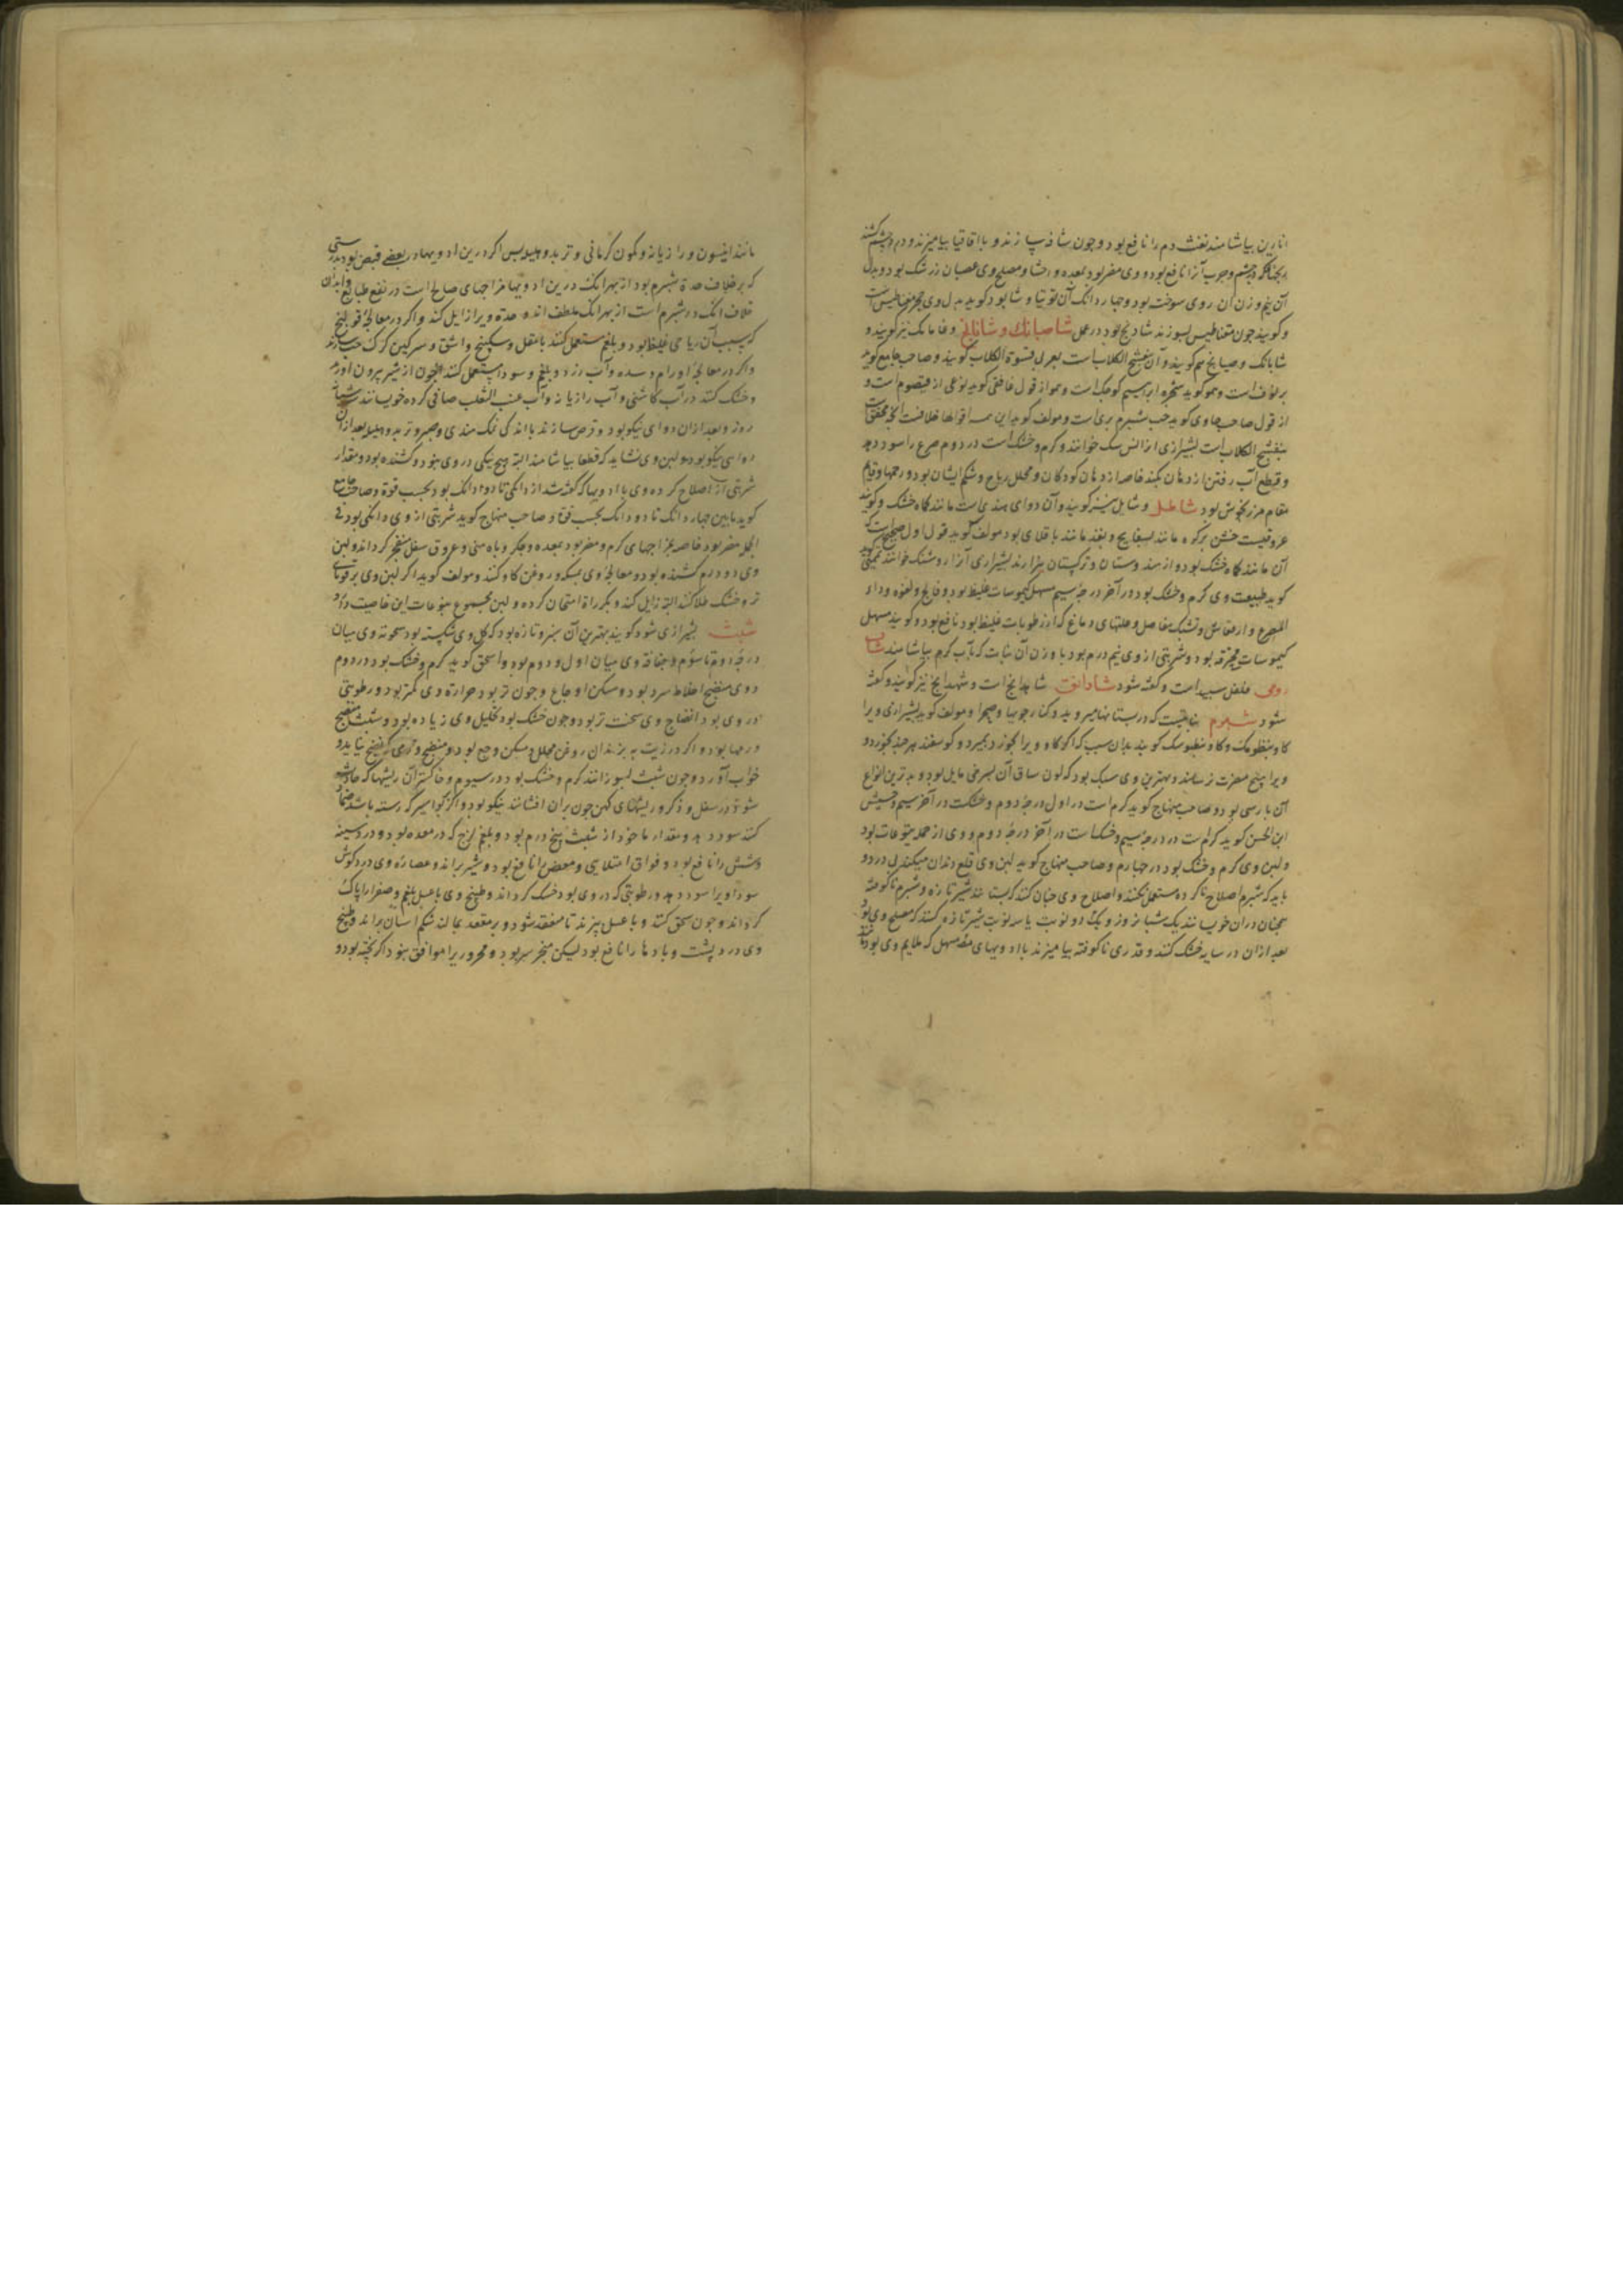 انارین بیاشامند نفث دم را نافع بود و چون شاف سازند و با اقاقیا بیامیزند و در چشم کشند
چشم و جرب آنرا نافع بود و وی مضر بود بمعده و احشا و مصلح وی عصیان زرشک بود و بدل
آن نیم وزن آن روی سوخته بود و چهار دانک آن توتیا و شابور کوید بدل وی حجر مغناطیس است
و کویند چون مغناطیس بسوزند شادنج بود در عمل شاصبانک و شانانج و فامانک نیز کویند و
شابانک و صیابانج هم کویند و آن بنفسج الکلاب است بعربی فسوة الکلاب کویند و صاحب جامع کوید
برنوف است و هموکوید شجره ابراهیم کوچک است و هم از قول غافقی کوید نوعی از قیصوم است و
از قول صاحب حاوی کوید حب شبرم بری است و مولف کوید این همه اقوالها خلافست انچه محقق است
بنفسج الکلاب است بشیرازی انرا نس سک خوانند و کرم و خشک است در دوم صرع را سود دهد
و قطع آب رفتن از دهان بکند خاصه از دهان کودکان و محلل ریاح و شکم ایشان بود و رحمها و قایم
مقام مرزنجوش بود شاطل و شایل نیز کویند و آن دوای هندی است مانند کماه خشک و کویند
عروقیست خشن پرکره مانند بسفایج و بقد مانند باقلای بود مولف کوید قول اول صحیح است که
آن مانند کماه خشک بود و از هندوستان و ترکستان خیزد بشیرازی آنرا روشنک خوانند تمیمی
کوید طبیعت وی کرم و خشک بود در آخر درجه سیم مسهل کیموسات غلیظ بود و فالج و لقوه و داء
الصرع و ارتعاش و تشبک مفاصل و علتهای دماغ که از رطوبات غلیظ بود نافع بود و کویند مسهل
کیموسات محترقه بود و شربتی از وی نیم درم بود با وزن آن نبات که بآب کرم بیاشامند شاب
رومی فلفل سپید است و کفته شود شادانق شاهدانج است و شهدانج نیز کویند و کفته
شود شبرم نباتیست که در بستانها میروید و کنار جویها و صحرا و مولف کوید بشیرازی ویرا
کاو بنطومک و کاو بنطوسک کویند بدان سبب که اکر کاو ویرا بخورد بمیرد و کوسفند هر چند بخورد و
ویرا هیچ مضرت نرساند و بهترین وی سبک بود که لون ساق آن بسرخی مایل بود و بدترین انواع
آن پارسی بود و صاحب منهاج کوید کرم است در اول درجه دوم و خشکست در آخر سیم و حبیش
ابن الحسن کوید کرم است در درجه سیم و خشک است در آخر درجه دوم و وی از جمله یتوعات بود
و لبن وی کرم و خشک بود در چهارم و صاحب منهاج کوید لبن وی قلع دندان میکند بی درد و
باید که شبرم اصلاح ناکرده مستعمل نکنند و اصلاح وی چنان کنند که بستانند شیر تازه و شبرم ناکوفته
همچنان دران خوسانند یک شبانروز و یک دو نوبت یا سه نوبت شیر تازه کنند که مصلح وی بود و
بعد ازان در سایه خشک کنند و قدری ناکوفته بیامیزند با ادویهای مسهل که ملایم وی بود
مانند انیسون و رازیانه و کمون کرمانی و تربد و هلیله پس اکر درین ادویها در بعضی قبض بود بدرستی
که بر خلاف حدة شبرم بود از بهر انک درین ادویها مزاجهای صالح است در نفع طبایع و ابدان
خلاف انک در شبرم است از بهر انک ملطف اند و حدة ویرا زایل کند و اکر در معالجه قولنج
که بسبب آن ریاحی غلیظ بود و بلغم مستعمل کنند با مقل و سکبینج و اشق و سرکین کرک حب سازند
و اکر در معالجه اورام و سده و آب زرد و بلغم و سودا مستعمل کنند چون از شیر بیرون اورند
و خشک کنند در آب کاسنی و آب رازیانه و آب عنب الثعلب صافی کرده خویسانند شبانه
روز و بعد ازان دوای نیکو بود و قرص سازند با اندکی نمک هندی و صبر و تربد و هلیله بعد ازان
دوایی نیکو بود و لبن وی نشاید که قطعا بیاشامند البته و هیچ نیکی در وی نبود و کشنده بود و مقدار
شربتی از اصلاح کرده وی با ادویها که کفته شد از دانکی تا دو دانک بود بحسب قوة و صاحب جامع
کوید مابین چهار دانک تا دو دانک بحسب قوة و صاحب منهاج کوید شربتی از وی دانکی بود فی
الجمله مضر بود خاصه بمزاجهای کرم و مضر بود بمعده و جکر و باه منی و عروق سفل منفجر کرداند و لبن
وی دو درم کشنده بود و معالجه وی بمسکه و روغن کاو کنند و مولف کوید اکر لبن وی بر قوبای
تر و خشک طلا کنند البته زایل کند و بکرراة امتحان کرده و لبن مجموع یتوعات این خاصیت دارد
شبث بشیرازی شود کویند بهترین آن سبز و تازه بود که کل وی شکفته بود سخونة وی میان
درجه دوم تا سوم و جفافة وی میان اول و دوم بود و اسحق کوید کرم و خشک بود در دوم
و وی منضج اخلاط سرد بود و مسکن اوجاع و چون تر بود حرارة وی کمتر بود و رطوبتی
در وی بود انضاج وی سخت تر بود و چون خشک بود تحلیل وی زیاده بود و شبث منضج
ورمها بود و اکر در زیت بپزند آن روغن محلل و مسکن وجع بود و منضج ورمی که نضج نیابد و
خواب آورد و چون شبث بسوزانند کرم و خشک بود در سیوم و خاکستر آن ریشها که حادث
شود در سفل و ذکر و ریشهای کهن چون بران افشانند نیکو بود و اکر بواسیر که رسته باشد ضماد
کنند سود دهد و مقدار ماخوذ از شبث پنج درم بود و بلغم لزج که در معده بود و در سینه
و شش را نافع بود و فواق امتلایی و مغص را نافع بود و شیر براند و عصاره وی درد کوش
سوداویرا سود دهد و رطوبتی که در وی بود خشک کرداند و طبیخ وی با عسل بلغم و صفرا را پاک
کرداند و چون سحق کنند و با عسل بپزند تا منعقد شود و بر مقعد بمالند شکم اسان براند و طبیخ
وی درد پشت و بادها را نافع بود لیکن مبخر سر بود و محروریرا موافق نبود اکر پخته بود و